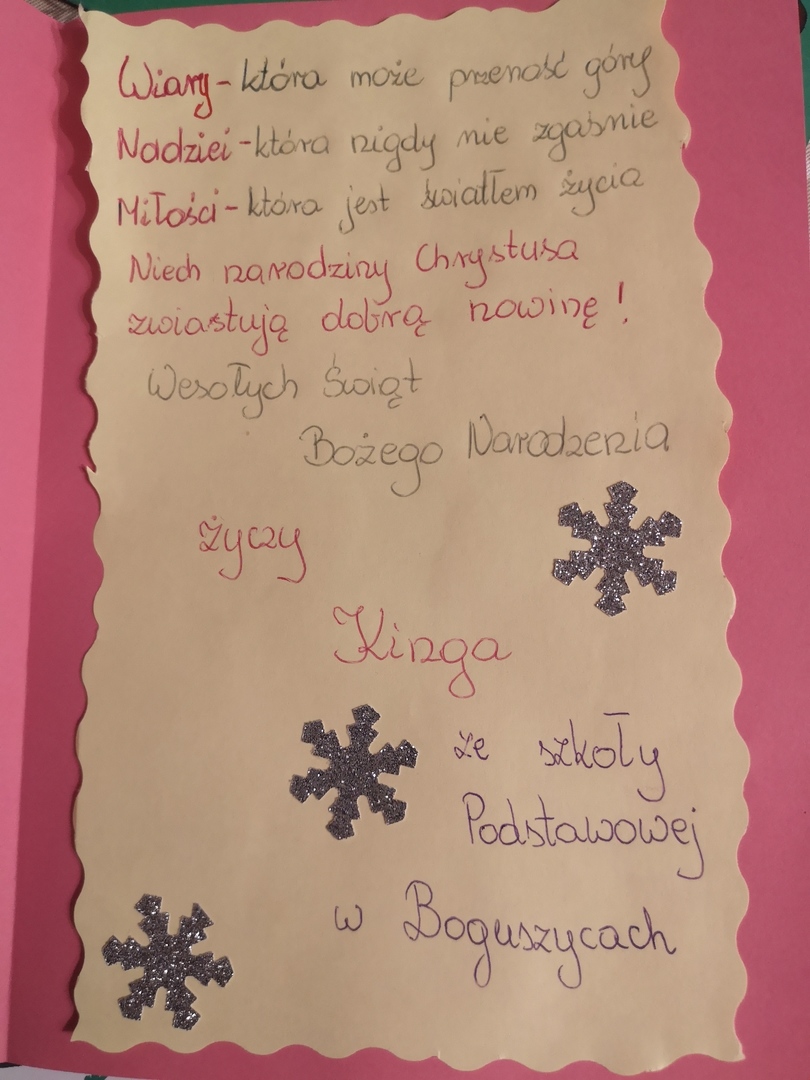 Wiary - która może przeność góry
Nadziei - która nigdy nie zgaśnie
Miłości - która jest światłem życia
Niech narodziny Chrystusa
zwiastują dobrą nowinę!
Wesołych Świąt
Bożego Narodzenia
życzy
Kinga
ze szkoły
Podstawowej
w Boguszycach